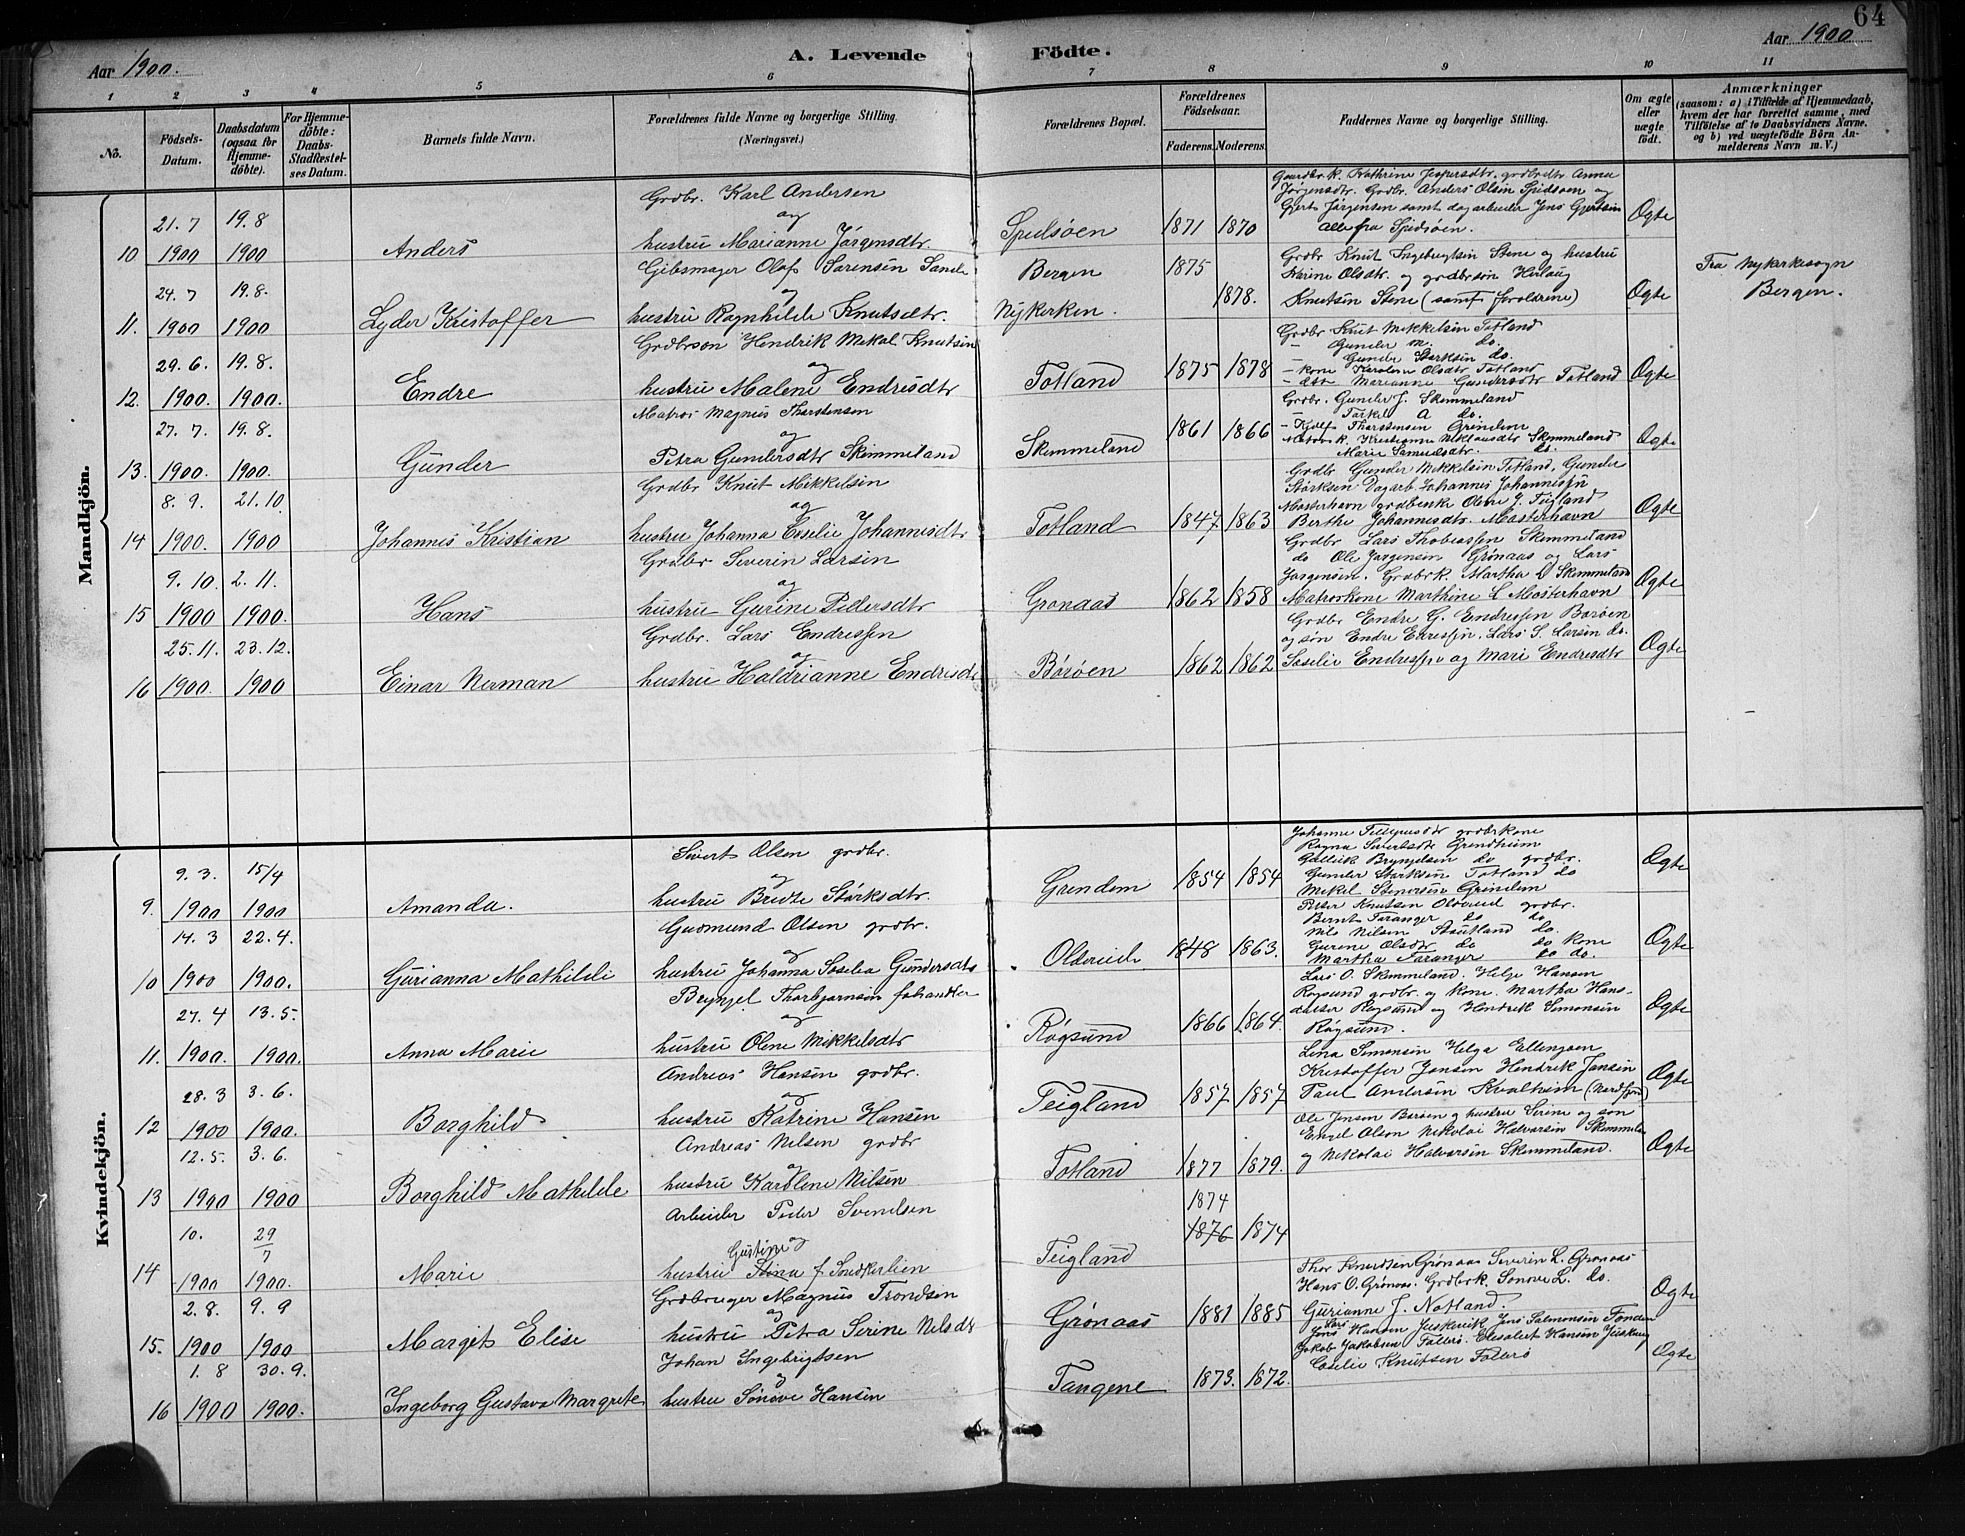 64
Aar 1900.
A. Levende Födte.
Aar 1900
1 2 3 4 5 6 7 8 9 10 11
No.
Födsels-Datum.
Daabsdatum (ogsaa for Hjemme-döbte).
For Hjemme-döbte: Daabs-Stadfæstel-ses Datum.
Barnets fulde Navn.
Forældrenes fulde Navne og borgerlige Stilling. (Næringsvei.)
Forældrenes Bopæl.
Forældrenes Födselsaar.
Faderens. Moderens.
Faddernes Navne og borgerlige Stilling.
Om ægte eller uægte födt.
Anmærkninger
(saasom: a) i Tilfælde af Hjemmedaab, hvem der har forrettet samme, med Tilföielse af to Daabsvidners Navne. og b) ved uægtefödte Börn Anmelderens Navn m. V.)
Mandkjön.
10 21. 7 1900 19. 8 1900 Anders
Grdbr. Karl Andersen
og
hustru Marianne Jörgensdtr.
Spidsöen 1871 1870
Jörgensdtr. Grdbr. Anders Olsen Spidsöen og
Gjert Jörgensen samt dagarbeider Jens Gjertsen
alle fra Spidsöen.
Ægte
11. 24. 7 1900 19. 8. 1900 Lyder Kristoffer
Gibsmager Olaf Sørensen Sande
og
hustru Ragnhilde Knutsdtr.
Bergen
Nykirken.
1875 1878.
Grdbr Knut Ingebrigtsen Stene og hustru
Karine Olsdtr. og grdbrsön
Knutsen Stene (samt forældrene)
Ægte
Fra Nykirkesogn
Bergen.
12. 29. 6. 1900. 19. 8. 1900. Endre
Grdbrsön Hendrik Mikal Knutsen
og
hustru Malene Endresdtr
Totland 1875 1878
Grdbr Knut Mikkelsen Totland
- Gunder M. do.
- Gunder Störksen do.
- kone Karolene Olsdtr Totland
- dtr Marianne Gundersdtr Totland
Ægte
13. 27. 7. 1900. 19. 8. 1900. Gunder
Matros Magnus Thorstensen
og
Petra Gundersdtr Skimmeland
Skimmeland 1861 1866
Grdbr. Gunder J. Skimmeland
Torkel A do.
Thorstensen Grindem
Matrosk. Kristianne Niklausdtr Skimmeland
Marie Samuelsdtr. do.
Ægte
14 8. 9. 1900. 21. 10. 1900 Johannes Kristian
Grdbr Knut Mikkelsen
og
hustru Johanna Esselie Johannesdtr
Totland 1847 1863
Grdbr Gunder Mikkelsen Totland, Gunder
Störksen Dagarb. Johannes Johannessen
Mosterhavn grdbrenke Olene J. Teigland
Berthe Johannesdtr. Mosterhavn
Ægte
15 9. 10. 1900 2. 11. 1900. Hans
Grdbr Severin Larsen
og
hustru Gurine Pedersdtr
Grønaas 1862 1858
Grdbr Lars Thobiassen Skimmeland
do Ole Jørgensen Grønaas og Lars
Jørgensen. Grdbrk. Martha D Skimmeland
Matroskone Marthine L Mosterhavn
Ægte
16 25. 11. 1900. 23. 12. 1900 Einar Nerman
Grdbr. Lars Endressen
og
hustru Haldrianne Endresdtr
Børøen 1862 1862
Grdbr Endre G. Endressen Børöen
og sön Endre Endressen, Lars S. Larsen do.
Soselie Endressen og Mari Endresdtr
Ægte
Kvindekjön.
9. 9. 3. 1900 15/4 1900 Amanda.
Sivert Olsen grdbr.
og
hustru Birdte Störksdtr.
Grendem 1854 1854
Johanne Tellefsdtr grdbrkone
Ragna Sivertsdtr Grendheim
Gullick Brynjelsen do grdbr.
Gunder Störksen Totland do
Mikel Stenersen Grindem
Ægte
10 14. 3 1900 22. 4. 1900. Gurianna Mathilde
Gudmund Olsen grdbr.
og
hustru Johanna Soselia Gundersdtr
Oldereide 1848 1863.
Peter Knutsen Oldereid grdbr.
Bernt Faranger do do
Nils Nilsen Stautland do.
Gurene Olsdtr do do kone
Martha Faranger do do.
Ægte
11. 27. 4 1900. 13. 5. 1900. Anna Marie
Brynjel Thorbjørnsen fohandler
og
hustru Olene Mikkelsdtr
Røgsund 1866 1864.
Lars O. Skimmeland. Helge Hansen
Røgsund grdbr. og kone. Martha Hans-
datter Røgsund og Hendrik Simonsen
Røgsund.
Ægte
12 28. 3 1900 3. 6. 1900. Borghild
Andreas Hansen grdbr.
og
hustru Katrine Hansen
Teigland 1857 1857
Lina Simonsen Helga Ellingsen
Kristoffer Jansen Hendrik Jansen
Paul Andersen Kvalheim (Nordfjord)
Ægte
13 12. 5. 1900 3. 6. 1900 Borghild Mathilde
Andreas Nilsen grdbr
og
hustru Karolene Nilsen
Totland 1877 1879.
Ole Jensen Børöen og hustru Serine og sön
Engel Olsen Nikolai Halvorsen Skimmeland
og Nikolai Halvorsen Skimmeland.
Ægte
14 10. 1900 29/7 1900. Marie
Arbeider Peder Svendsen
og
hustru Stina Gustine f. Soudkerlien
Teigland 1876 1874 1874
15. 2. 8. 1900 9. 9 1900 Margit Elise
Grdbruger Magnus Trondsen
og
hustru Petra Serine Nilsdtr
Grønaas 1881 1885
Thor Knudsen Grønaas Severin L. Grönaas
Hans O. Grønaas. Grdbrk. Sönove L. do.
Gurianne J. Notland.
Ægte
16 1. 8 1900 30. 9. 1900. Ingeborg Gustava Margrete
Johan Ingebrigtsen
og
hustru Sønove Hansen
Tangene 1873. 1872.
Lars Hansen Jens Salmonsen
Jakob Jakobsen Follerö. Elesabet Hansen
Coselie Knutsen Follerö
Ægte